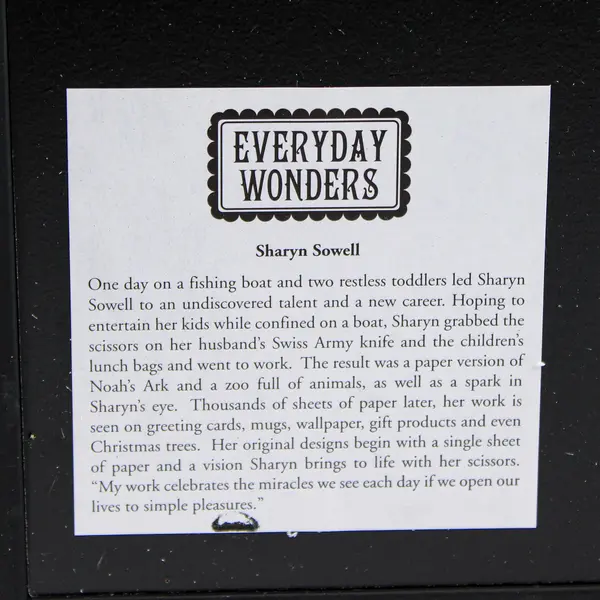 EVERYDAY
WONDERS
Sharyn Sowell
One day on a fishing boat and two restless toddlers led Sharyn
Sowell to an undiscovered talent and a new career. Hoping to
entertain her kids while confined on a boat, Sharyn grabbed the
scissors on her husband's Swiss Army knife and the children's
lunch bags and went to work. The result was a paper version of
Noah's Ark and a zoo full of animals, as well as a spark in
Sharyn's eye. Thousands of sheets of paper later, her work is
seen on greeting cards, mugs, wallpaper, gift products and even
Christmas trees. Her original designs begin with a single sheet
of paper and a vision Sharyn brings to life with her scissors.
“My work celebrates the miracles we see each day if we open our
lives to simple pleasures.”